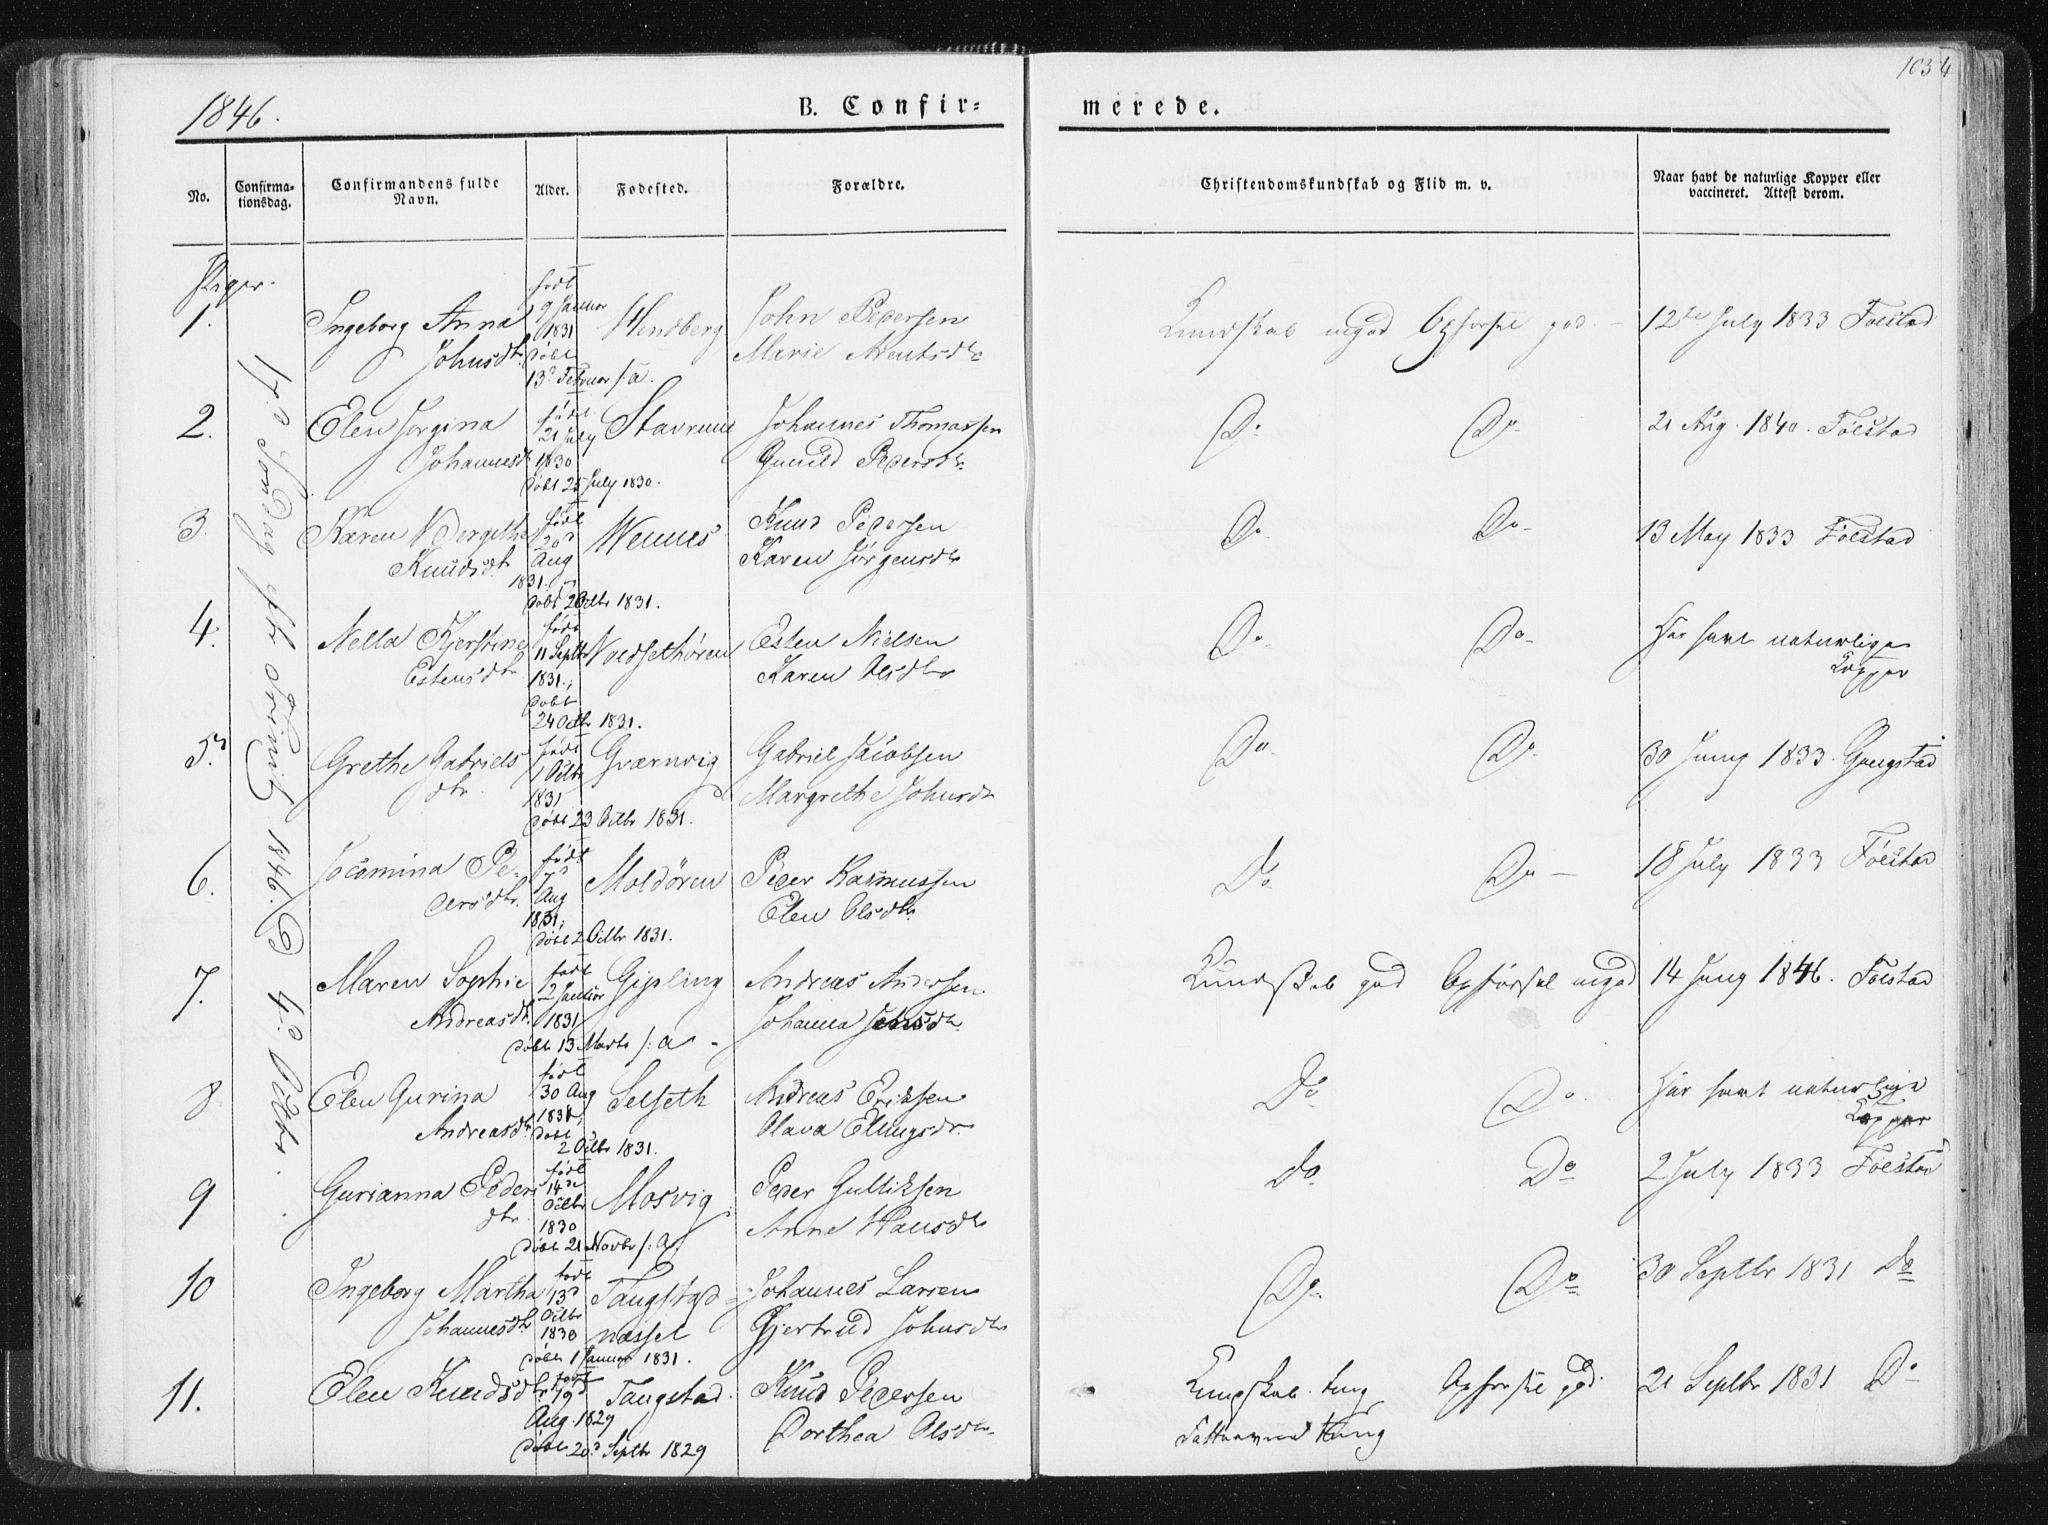 1034
1846.
B. Confir- merede.
No. Confirma-tionsdag. Confirmandens fulde Navn. Alder. Fødested. Forældre. Christendomskundskab og Flid m. v. Naar havt de naturlige Kopper eller vaccineret. Attest derom.
Piger.
17d Søndag eft. Trinit 1846. 4d Octbr.
1. Ingeborg Anna Johnsdtr født 9 Januar 1831 døbt 13d Februar s: a. Hindberg John Pedersen Marie Arentsdtr Kundskab mgod Opførsel god - 12te July 1833 Føestad
2. Elen Jørgina Johannesdtr født 21 July 1830 døbt 25 July 1830. Stavrum Johannes Thomassen Gunild Pedersdtr Do Do 21 Aug. 1840. Føestad
3. Karen Bergitha Knudsdtr født 20d Aug 1831. døbt 2 Octbr 1831. Wennes Knud Pedersen Karen Jørgensdtr Do Do 13 May 1833 Føestad
4. Nella Kjerstine Estensdtr født 11 Septbr 1831; døbt 24 Octbr 1831. Voldsethøren Esten Nielsen Karen Olsdtr Do Do Har havt naturlige Kopper
5. Grethe Gabriels dtr. født 1 Octbr 1831 døbt 23 Octbr 1831. Gværnvig Gabriel Jacobsen Margrethe Johnsdtr Do Do 30 Juny 1833. Gangstad
6. Jocamina Pe-dersdtr. født 7d Aug 1831; døbt 2 Octbr 1831. Moldøren Peder Rasmussen Elen Olsdtr Do Do - 18 July 1833 Føestad
7. Maren Sophie Andreasdtr. født 2 Januar 1831 døbt 13 Marts s: a - Gipling Andreas Andersen Johanna Jensdtr Kundskab god Opførsel mgod 14 Juny 1846. Føestad
8 Elen Gurina Andreasdtr født 30 Aug 1831, døbt 2 Octbr 1831. Selseth Andreas Eriksen Olava Elingsdr. Do Do Har havt naturlige Kopper
9 Gurianna Peders dtr. født 14de Octbr 1830 døbt 21 Novbr s: a. Mosvig Peder Gulliksen Anne Hansdtr do Do 2 July 1833 Føestad
10 Ingeborg Martha Johannesdtr født 13d Octbr 1830 døbt 1 Januar 1831. Tangstad-næsset Johannes Larsen Gjertrud Johnsdtr Do Do 30 Septbr 1831 Do
11. Elen Knudsdtr født 19d Aug. 1829 døbt 20d Septbr 1829 Tangstad. Knud Pedersen Dorthea Olsdtr. Kundskab tung Fatteevne tung Opførsel god. 21 Septbr 1831 Do